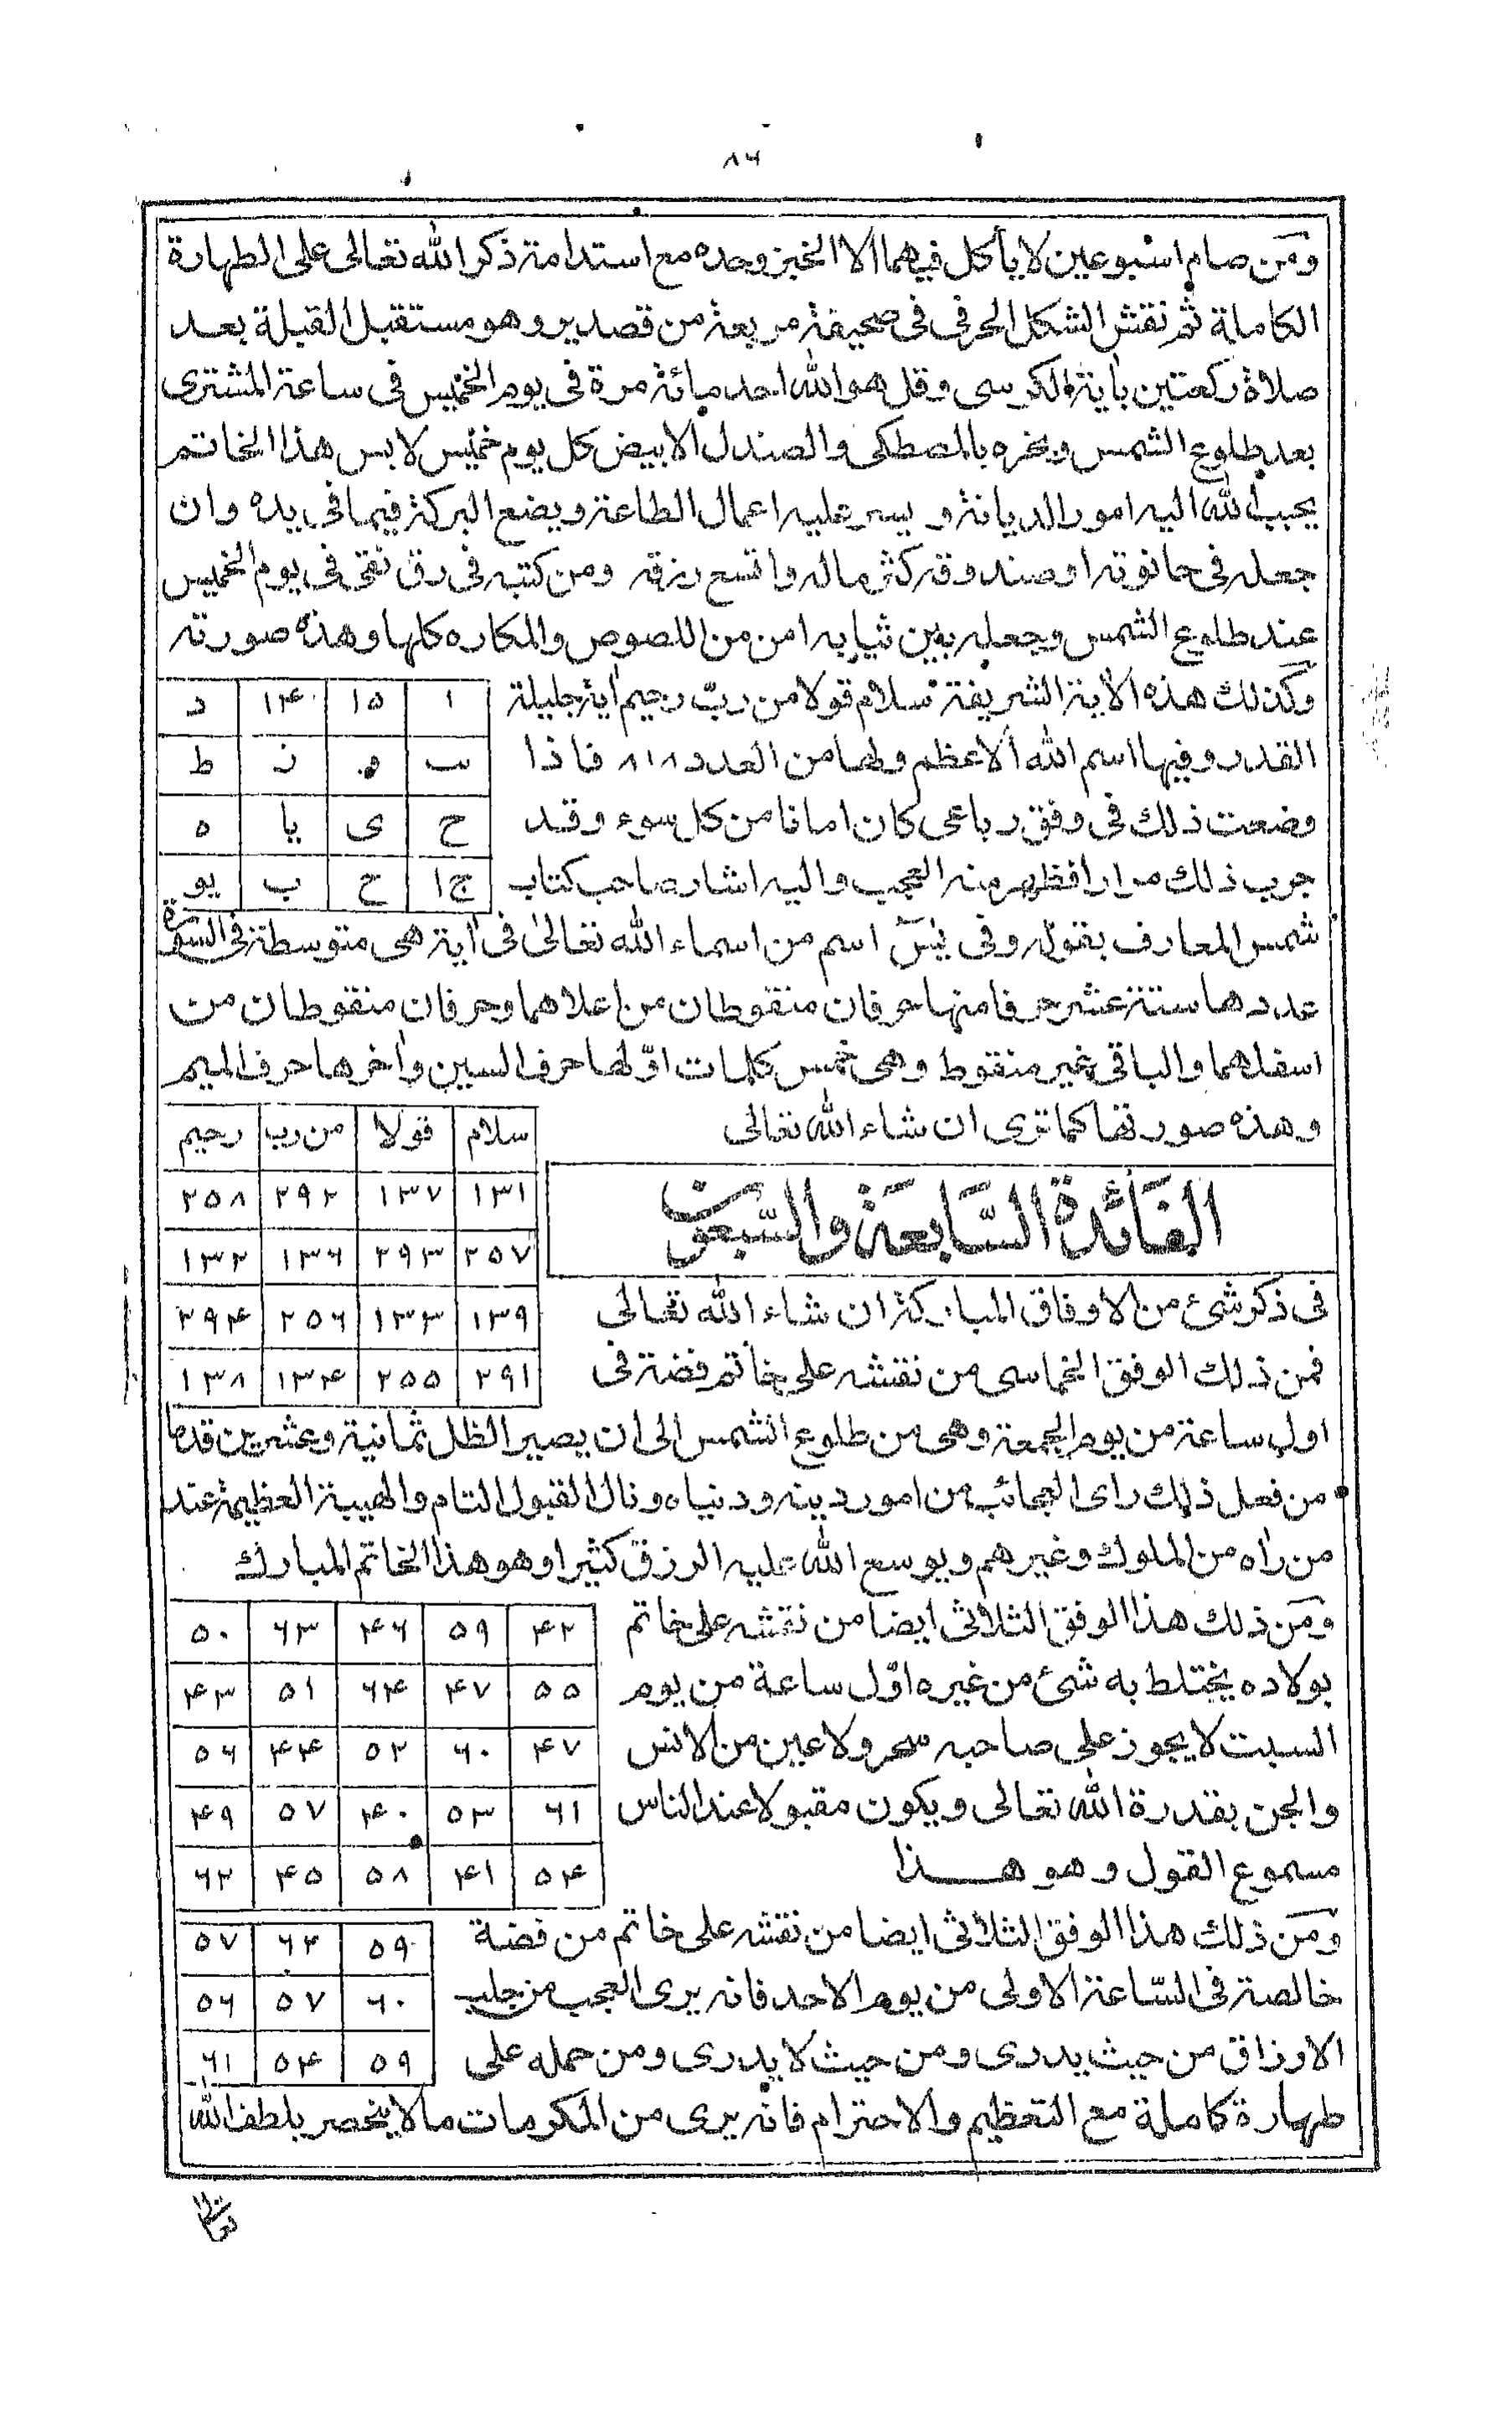 ٨٦
ومن صام اسبوعين لا يأكل فيهما الا الخبز وحده مع استدامة ذكر الله تعالى على الطهارة
الكاملة ثم نقش الشكل الحرفى فى صحيفة مربعة من قصدير وهو مستقبل القبلة بعد
صلاة ركعتين بأية الكرسى وقل هو الله احد مائة مرة فى يوم الخميس فى ساعة المشترى
بعد طلوع الشمس وبخره بالمصطكى والصندل الابيض كل يوم خميس لابس هذا الخاتم
يحبب الله اليه امور الديانة ويسر عليه اعمال الطاعة ويضع البركة فيما فى يده وان
جعله فى حانوته او صندوقه كثر ماله واتسع رزقه ومن كتبه فى رق نقى فى يوم الخميس
عند طلوع الشمس وجعله بين ثيابه امن من اللصوص والمكاره كلها وهذه صورته
ا ١٥ ١۴ د
ب و ز ط
ح ى يا ه
ج١ ح ب يو
وكذلك هذه الآية الشريفة سلام قولا من رب رحيم اية جليلة
القدر وفيها اسم الله الاعظم ولها من العدد ٨١٨ فاذا
وضعت ذلك فى وفق رباعى كان امانا من كل سوء وقد
جرب ذلك مرارا فظهر منه العجيب واليه اشار صاحب كتاب
شمس المعارف بقوله وفى يٰسٓ اسم من اسماء الله تعالى فى أية هى متوسطة فى السورة
عددها ستة عشر حرفا منها حرفان منقوطان من اعلاهما وحرفان منقوطان من
اسفلهما والباقى غير منقوط وهى خمس كلمات اوّلها حرف السين وأخرها حرف الميم
وهذه صورتها كما ترى ان شاء الله تعالى
سلام قولا من رب رحيم
١٣١ ١٣٧ ٢٩٢ ٢٥٨
٢٥٧ ٢٩٣ ١٣٦ ١٣٢
١٣٩ ١٣٣ ٢٥٦ ٢٩۴
٢٩١ ٢٥٥ ١٣۴ ١٣٨
الفَائدة السَّابعَة والسَّبعون
فى ذكر شئ من الاوفاق المباركة ان شاء الله تعالى
فمن ذلك الوفق الخماسى من نقشه على خاتم فضة فى
اول ساعة من يوم الجمعة وهى من طلوع الشمس الى ان يصير الظل ثمانية وعشرين قدما
من فعل ذلك راى العجائب من امور دينه ودنياه ونال القبول التام والهيبة العظيمة عند
من رأه من الملوك وغيرهم ويوسع الله عليه الرزق كثيرا وهو هذا الخاتم المبارك
۴٢ ٥٩ ۴٦ ٦٣ ٥٠
٥٥ ۴٧ ٦۴ ٥١ ۴٣
۴٧ ٦٠ ٥٢ ۴۴ ٥٦
٦١ ٥٣ ۴٠ ٥٧ ۴٩
٥۴ ۴١ ٥٨ ۴٥ ٦٢
ومن ذلك هذا الوفق الثلاثى ايضا من نقشه على خاتم
بولاده يختلط به شئ من غيره اوّل ساعة من يوم
السبت لا يجوز على صاحبه سحر ولا عين من الانس
والجن بقدرة الله تعالى ويكون مقبولا عند الناس
مسموع القول وهو هذا
٥٩ ٦٢ ٥٧
٦٠ ٥٧ ٥٦
٥٩ ٥۴ ٦١
ومن ذلك هذا الوفق الثلاثى ايضا من نقشه على خاتم من فضة
خالصة فى السّاعة الاولى من يوم الاحد فانه يرى العجب من جلب
الارزاق من حيث يدرى ومن حيث لا يدرى ومن حمله على
طهارة كاملة مع التعظيم والاحترام فانه يرى من المكرمات ما لا ينحصر بلطف الله
تعالى